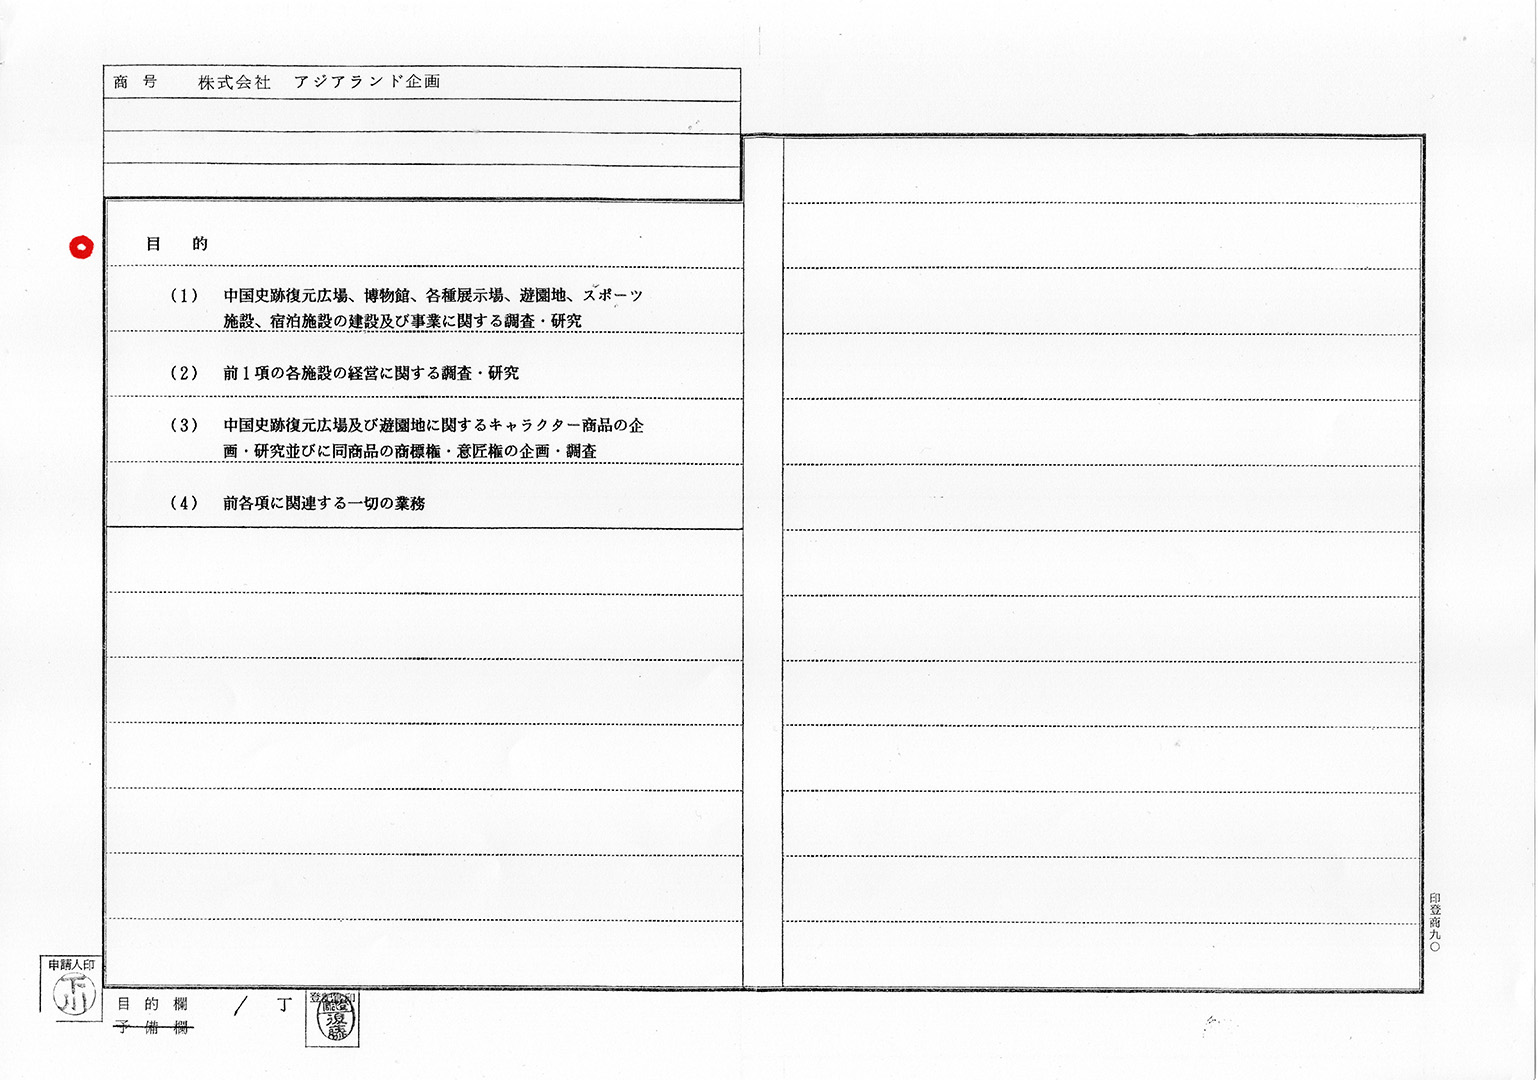 商 号 株式会社 アジアランド企画
目 的
(1) 中国史跡復元広場、博物館、各種展示場、遊園地、スポーツ
施設、宿泊施設の建設及び事業に関する調査・研究
(2) 前1項の各施設の経営に関する調査・研究
(3) 中国史跡復元広場及び遊園地に関するキャラクター商品の企
画・研究並びに同商品の商標権・意匠権の企画・調査
(4) 前各項に関連する一切の業務
印登商九〇
申請人印
目 的 欄 / 丁
予 備 欄